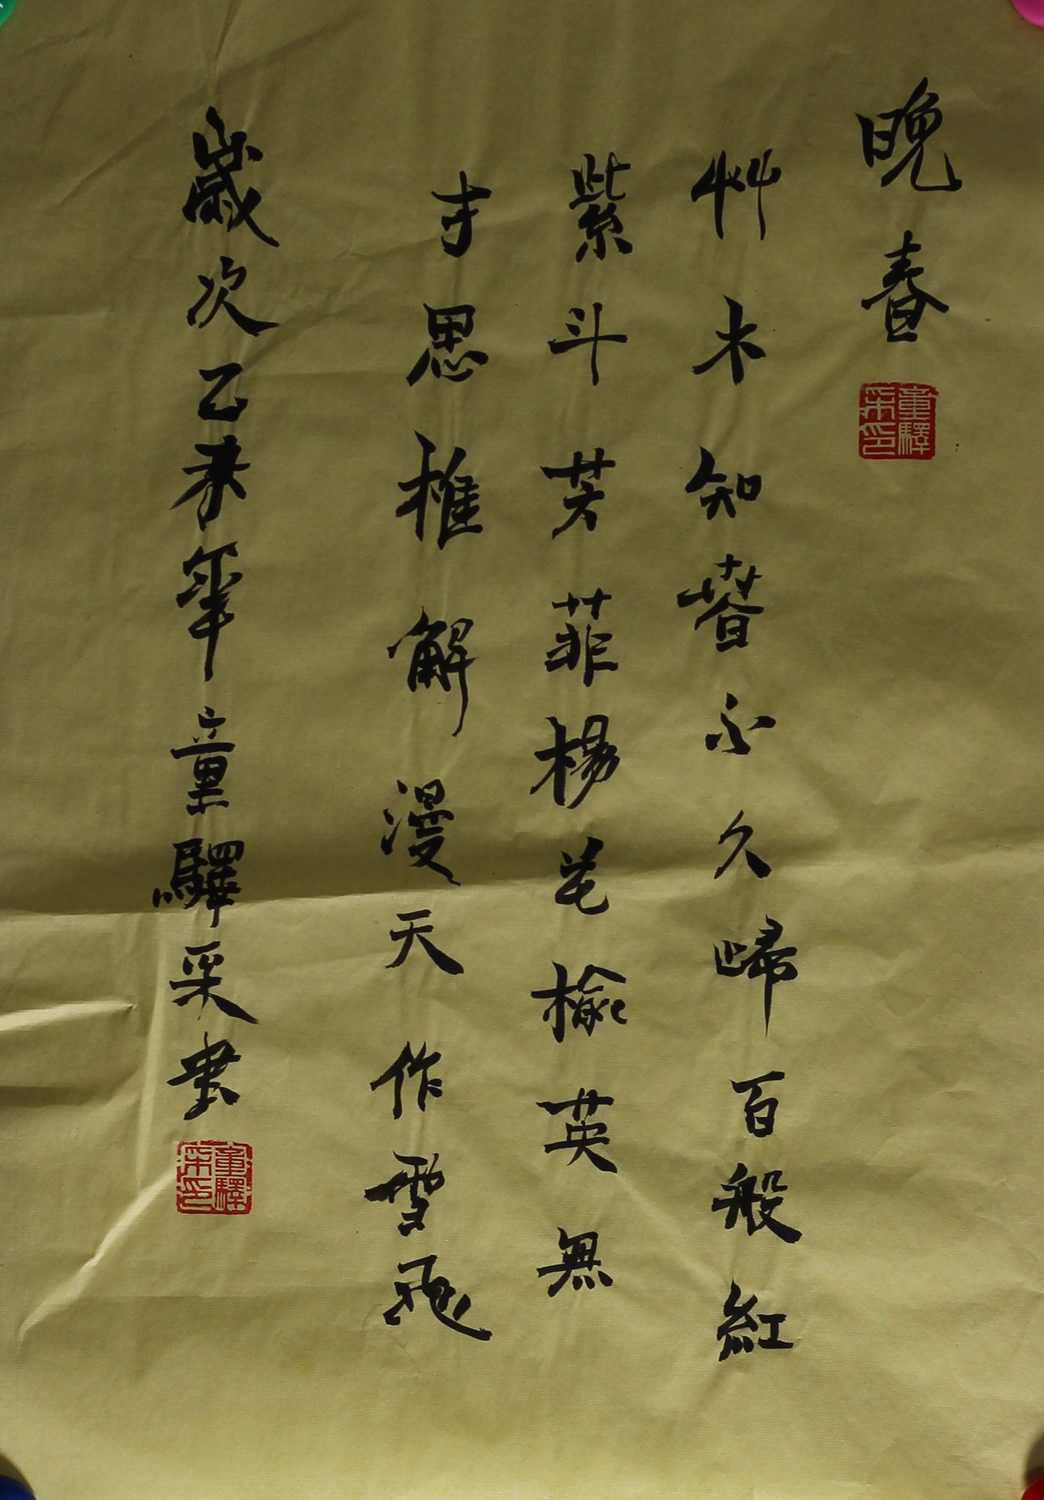 晚春
童驛采印
艸木知春不久歸百般紅
紫斗芳菲楊花榆英無
才思惟解漫天作雪飛
歲次乙未年童驛采書
童驛采印